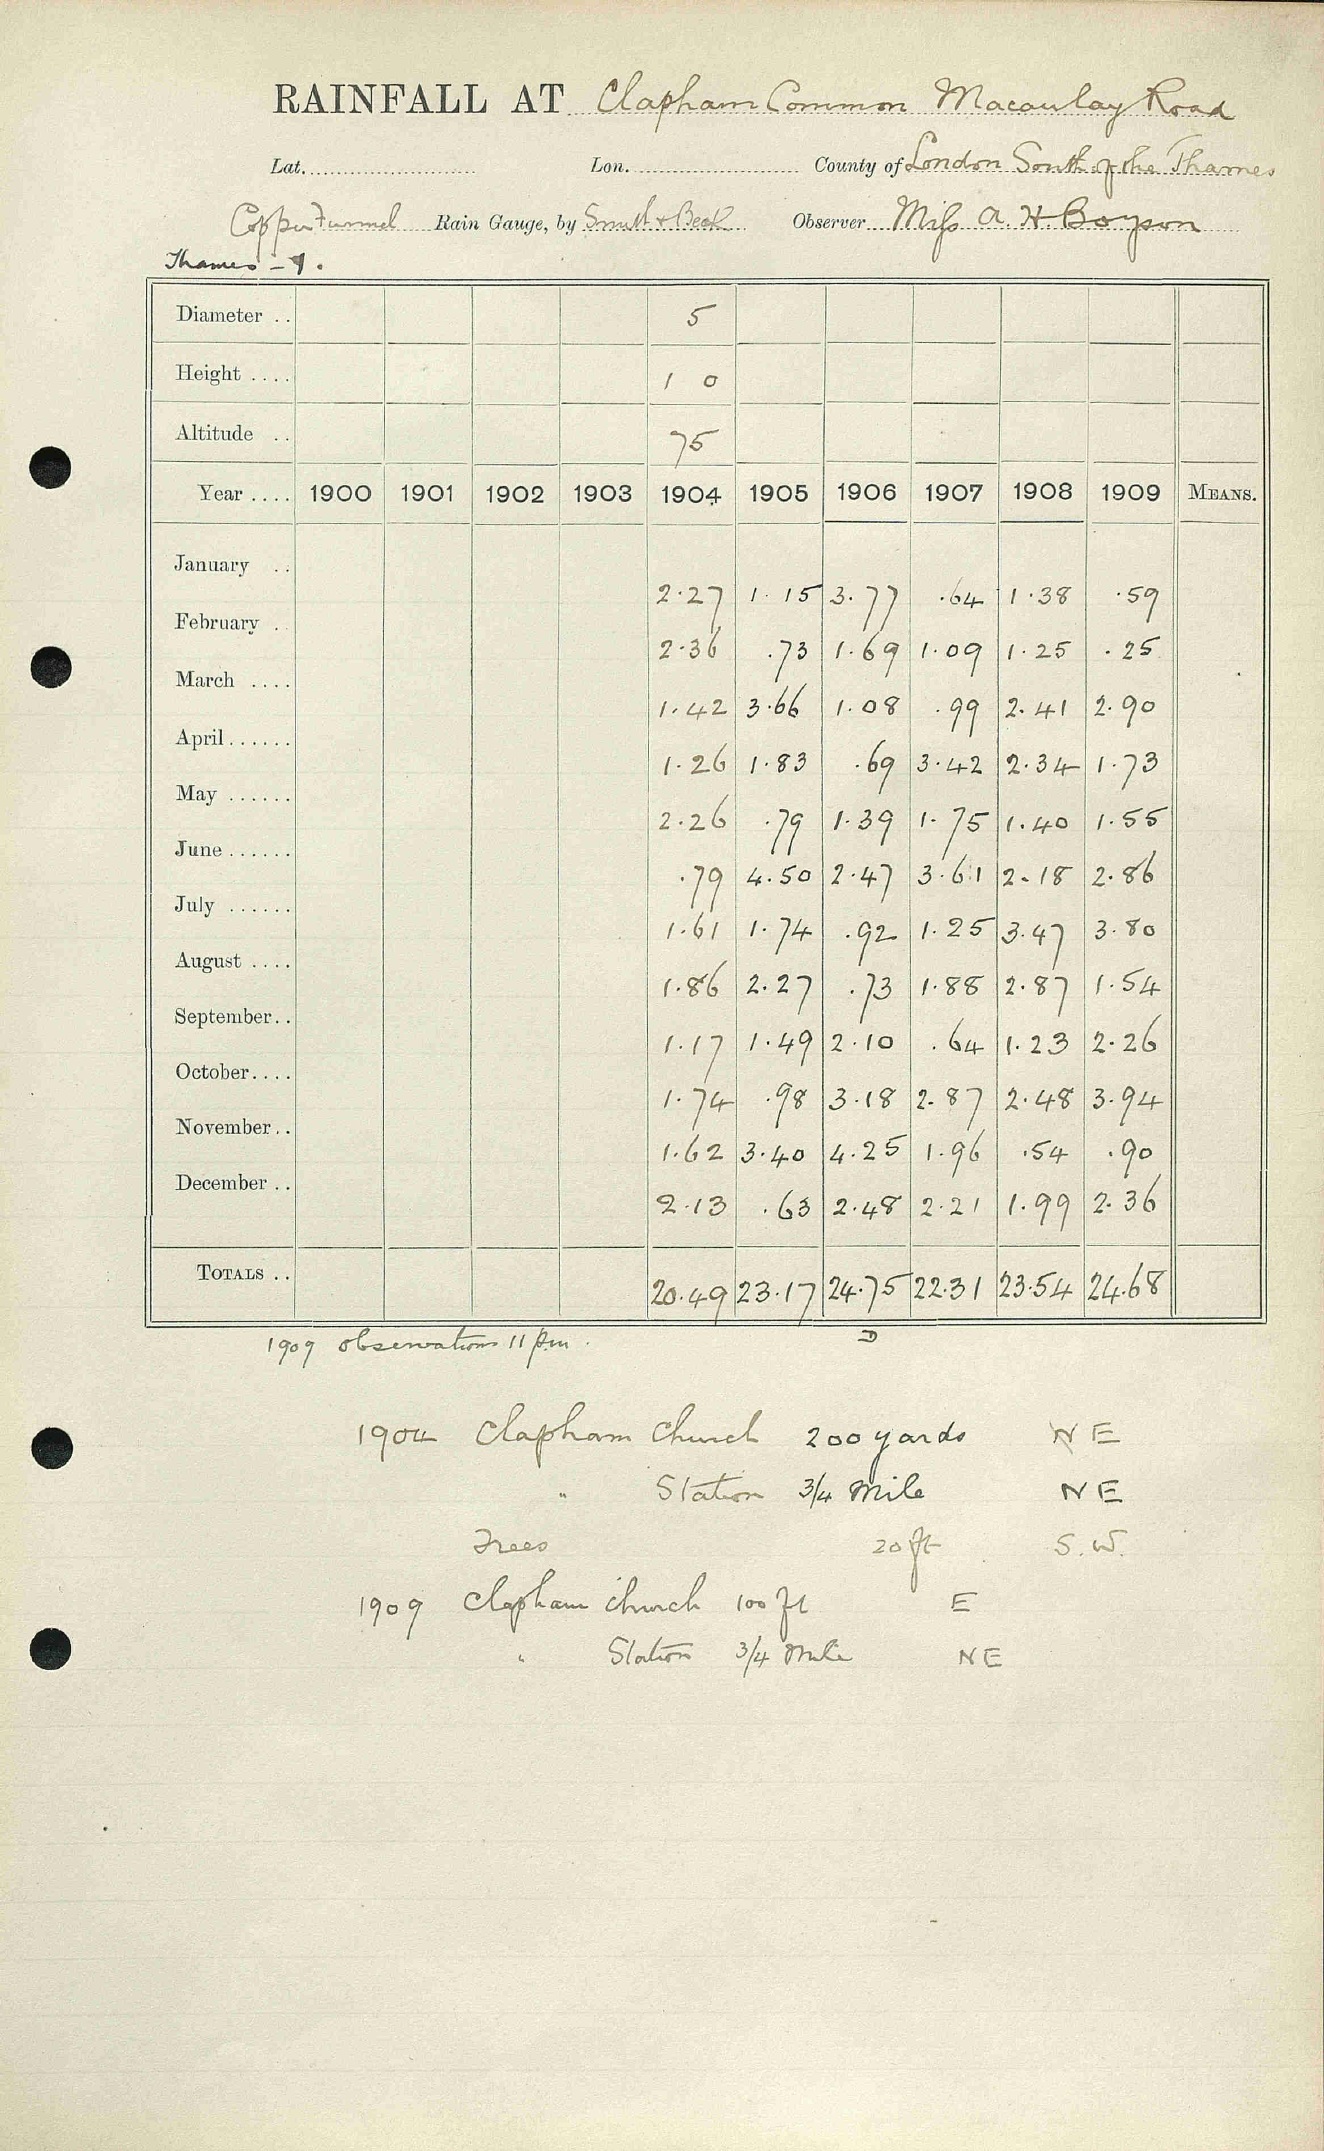 RAINFALL AT Clapham Common Macaulay Road
Lat. Lon. County of London South of the Thames
Copper Funnel Rain Gauge, by Smith & Beck Observer Miss A. H Boyson
Thames - 1.
Diameter .. 5
Height .... 1 0
Altitude .. 75
Year .... 1900 1901 1902 1903 1904 1905 1906 1907 1908 1909 MEANS.
January .. 2.27 1.15 3.77 .64 1.38 .59
February . 2.36 .73 1.69 1.09 1.25 .25
March .... 1.42 3.66 1.08 .99 2.41 2.90
April...... 1.26 1.83 .69 3.42 2.34 1.73
May ...... 2.26 .79 1.39 1.75 1.40 1.55
June...... .79 4.50 2.47 3.61 2.18 2.86
July ...... 1.61 1.74 .92 1.25 3.47 3.80
August .... 1.86 2.27 .73 1.88 2.87 1.54
September.. 1.17 1.49 2.10 .64 1.23 2.26
October.... 1.74 .98 3.18 2.87 2.48 3.94
November.. 1.62 3.40 4.25 1.96 .54 .90
December .. 2.13 .63 2.48 2.21 1.99 2.36
TOTALS .. 20.49 23.17 24.75 22.31 23.54 24.68
1909 observations 11 pm. D
1904 Clapham Church 200 yards NE
" Station 3/4 Mile NE
Trees 20 ft S.W.
1909 Clapham church 100 ft E
" Station 3/4 Mile NE